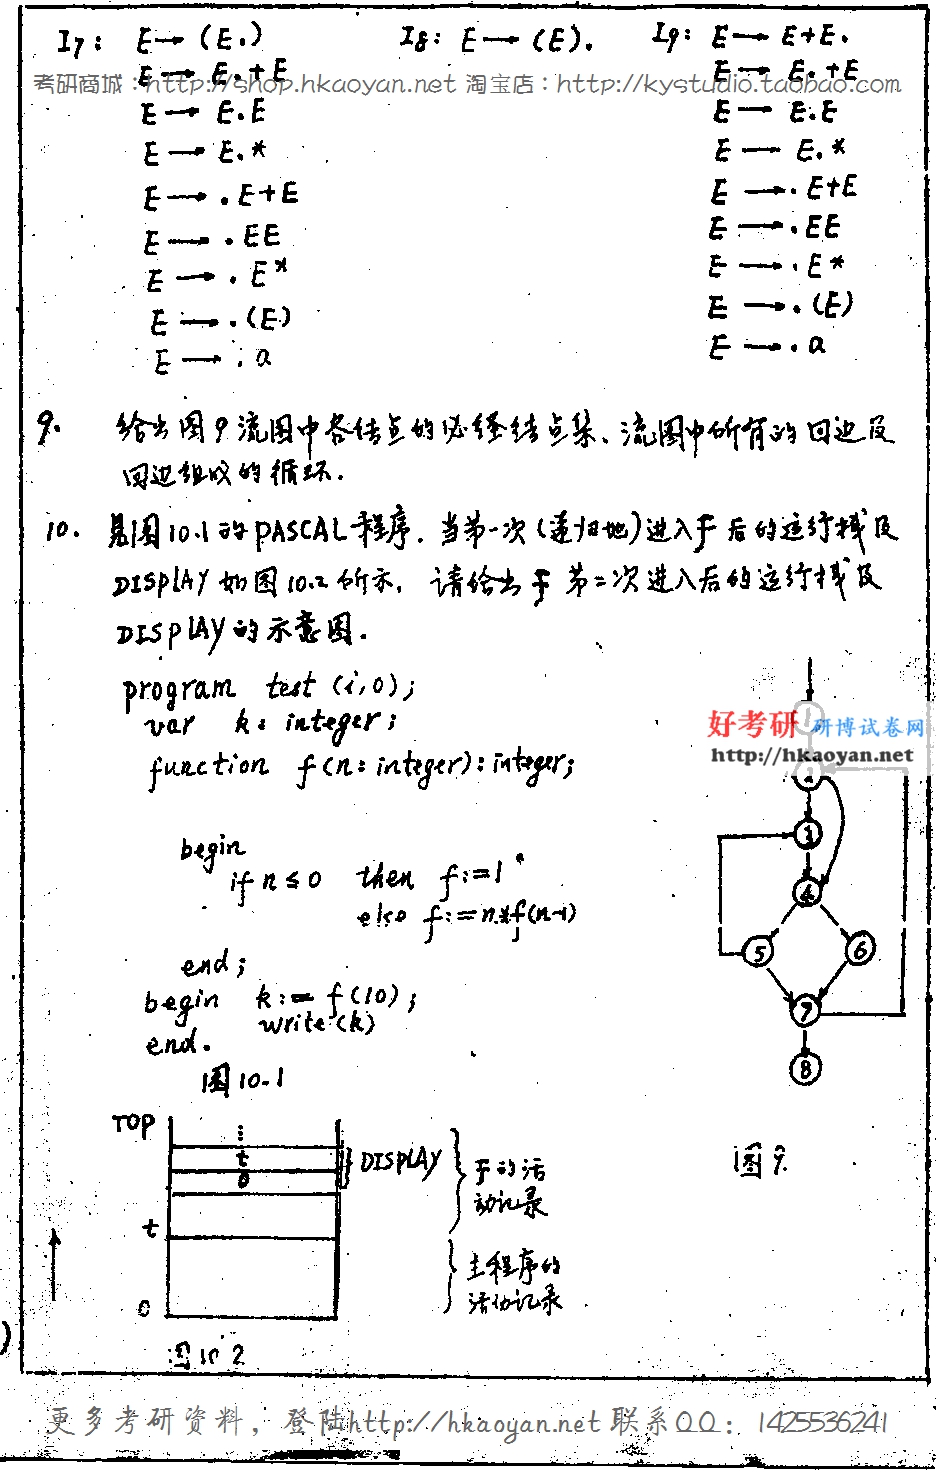 I7: E→(E.) I8: E→(E). I9: E→E+E.
E→E.+E E→E.+E
考研商城：http://shop.hkaoyan.net 淘宝店：http://kystudio.taobao.com
E→E.E E→E.E
E→E.* E→E.*
E→.E+E E→.E+E
E→.EE E→.EE
E→.E* E→.E*
E→.(E) E→.(E)
E→.a E→.a
9. 给出图9流图中各结点的必经结点集、流图中所有的回边及
回边组成的循环.
10. 见图10.1的PASCAL程序. 当第一次(递归地)进入f后的运行栈及
DISPLAY如图10.2所示, 请给出f第二次进入后的运行栈及
DISPLAY的示意图.
program test (i,o);
var k: integer;
function f(n: integer): integer;
begin
if n≤0 then f:=1
else f:=n*f(n-1)
end;
begin k:=f(10);
write(k)
end.
图10.1
好考研 研博试卷网
http://hkaoyan.net
1
2
3
4
5 6
7
8
图9.
TOP
⋮
t
0
DISPLAY
f的活
动记录
t
主程序的
活动记录
0
图10.2
更多考研资料，登陆http://hkaoyan.net 联系QQ：1425536241